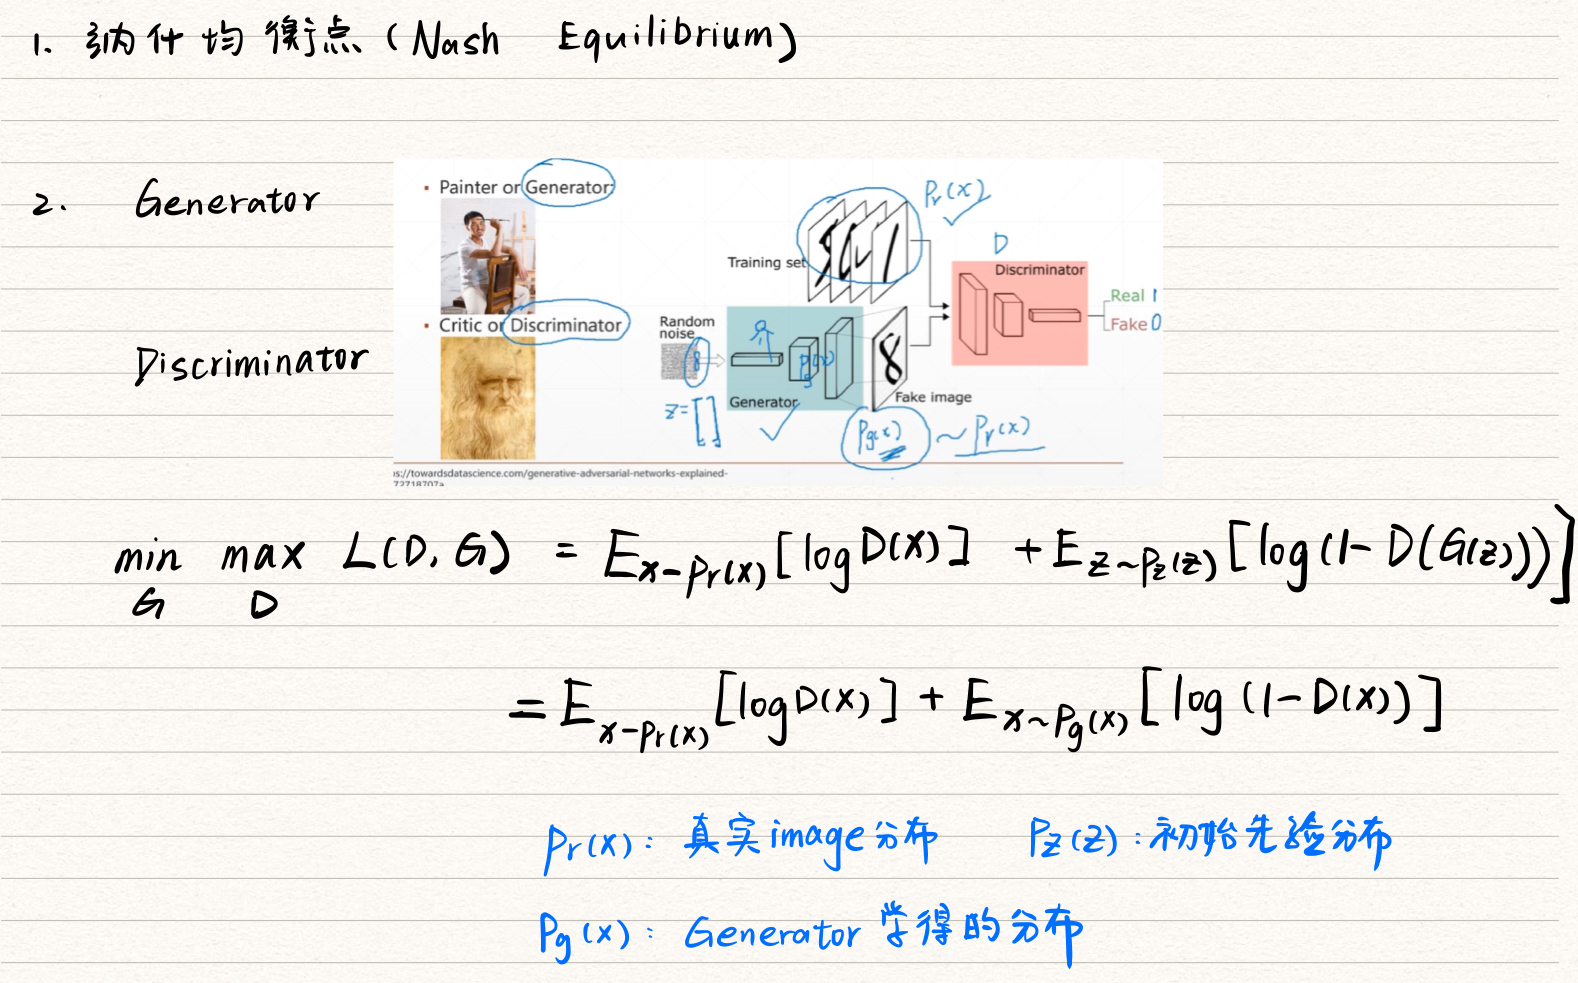 1. 纳什均衡点 (Nash Equilibrium)
2. Generator
Discriminator
▪ Painter or Generator:
▪ Critic or Discriminator
Training set
Pr(x)
D
Discriminator
Real 1
Fake 0
Random
noise
Pg(x)
Generator
z=[ ]
Fake image
Pg(x) ~ Pr(x)
s://towardsdatascience.com/generative-adversarial-networks-explained-
72718707a
min max L(D, G) = E x-Pr(x) [log D(x)] + E z~Pz(z) [log(1-D(G(z)))]
G D
= E x-Pr(x) [log D(x)] + E x~Pg(x) [log (1-D(x))]
Pr(x): 真实image分布 Pz(z):初始先验分布
Pg(x): Generator 学得的分布